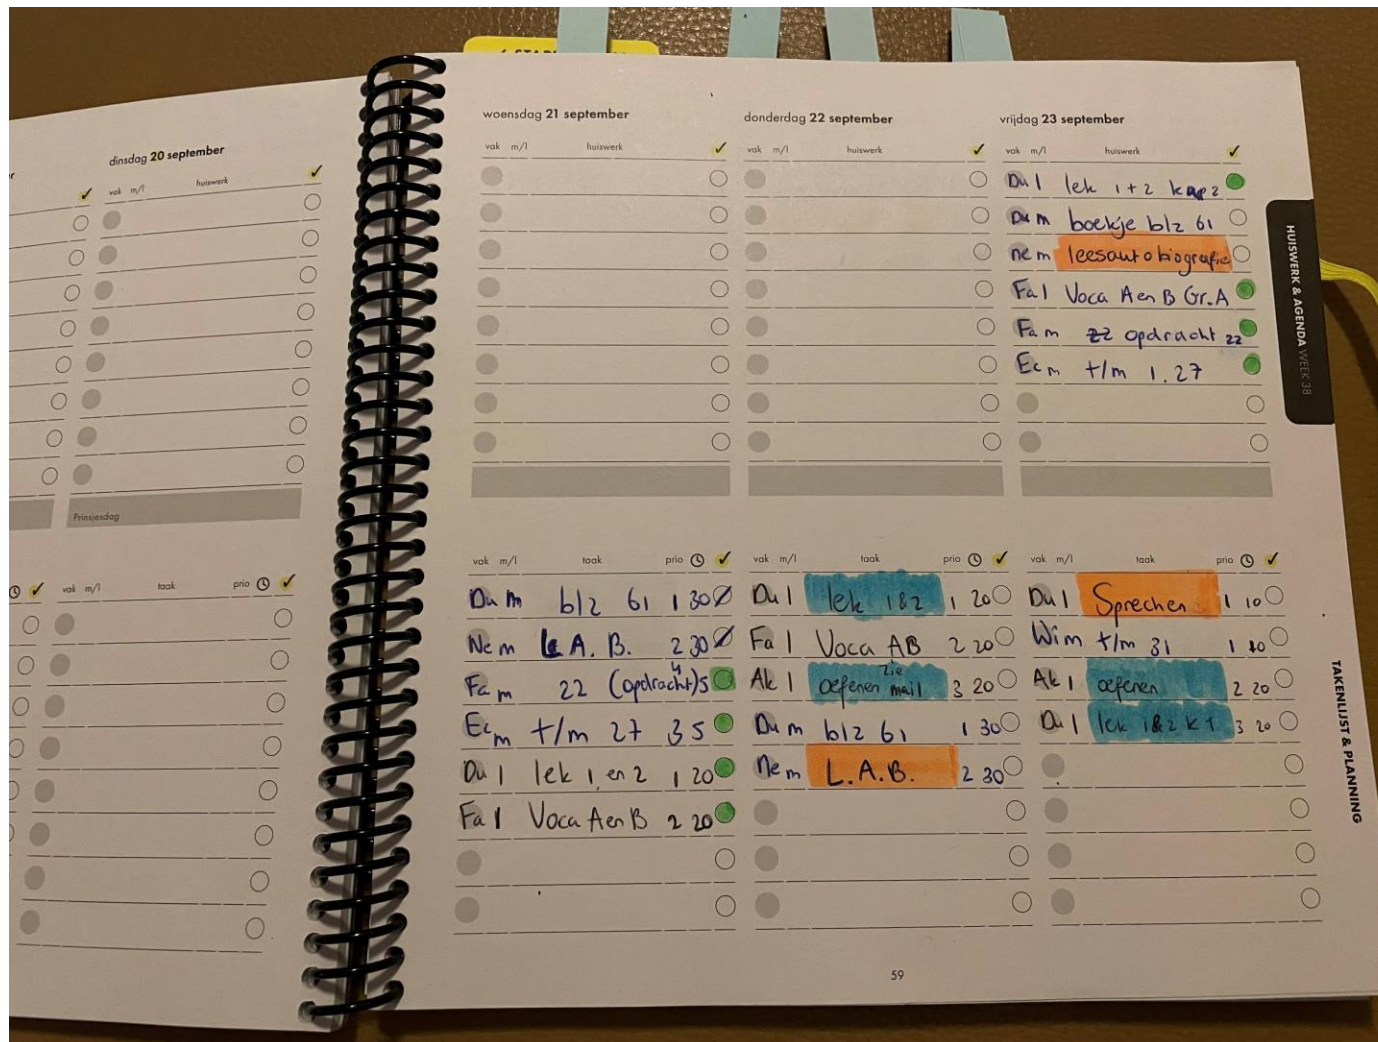 dinsdag 20 september
vak m/l huiswerk
Prinsjesdag
vak m/l taak prio
woensdag 21 september
vak m/l huiswerk
donderdag 22 september
vak m/l huiswerk
vrijdag 23 september
vak m/l huiswerk
Du l lek 1+2 kap 2
Du m boekje blz 61
ne m leesautobiografie
Fa l Voca A en B Gr. A
Fa m opdracht 22
Ec m t/m 1.27
HUISWERK & AGENDA WEEK 38
vak m/l taak prio
Du m blz 61 1 30
Ne m L.A.B. 2 30
Fa m 22 (opdracht) 4 5
Ec m t/m 27 3 5
Du l lek 1 en 2 1 20
Fa l Voca A en B 2 20
vak m/l taak prio
Du l lek 1&2 1 20
Fa l Voca AB 2 20
Ak l oefenen zie mail 3 20
Du m blz 61 1 30
Ne m L.A.B. 2 30
vak m/l taak prio
Du l Sprechen 1 10
Wi m t/m 31 1 10
Ak l oefenen 2 20
Du l lek 1&2 k1 3 20
TAKENLIJST & PLANNING
59